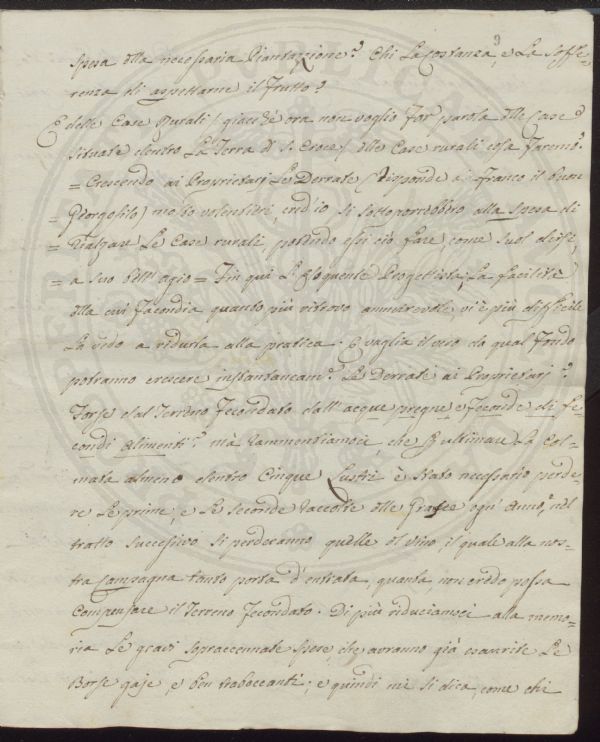 9
spesa alla necessaria Piantazzione? Chi La Costanza, e La Soffe-
renza di aspettarne il Frutto?
E delle Case Rurali (giacchè ora non voglio far parola dlle Case
situate dentro La Terra di S. Croce) dlle Case rurali cosa Faremo?
= Crescendo ai Proprietarj Le Derrate (Risponde a Franco il buon
= Georgofilo) molto volentieri cred'io si sottoporrebbero alla spesa di
= rialzare Le Case rurali potendo essi ciò fare, come suol dirsi,
= a suo bell'agio = Fin quì L'Eloquente Progettista, La facilità
dlla cui Facondia quanto più ritrovo ammirevole, vi è più difficile
La vedo a ridurla alla pratica. E vaglia il vero da qual Fondo
potranno crescere instantaneam.e Le Derrate ai Proprietarj?
Forse dal Terreno Fecondato dall'acque pregne e Feconde di fe-
condi alimenti? mà rammentiamoci, che P ultimare La Col-
mata almeno dentro Cinque Lustri è stato necessario perde-
re Le prime, e Le Seconde raccolte dlle Grasce ogn'Anno, nel
tratto successivo si perderanno quelle dl vino, il quale alla nos-
tra Campagna tanto porta d'entrata, quanta, non credo possa
Compensare il Terreno Fecondato. Di più riduciamoci alla memo-
ria Le gravi sopraccennate spese, che avranno già esaurite Le
Borse gaje, e ben traboccanti; e quindi mi si dica, come chi